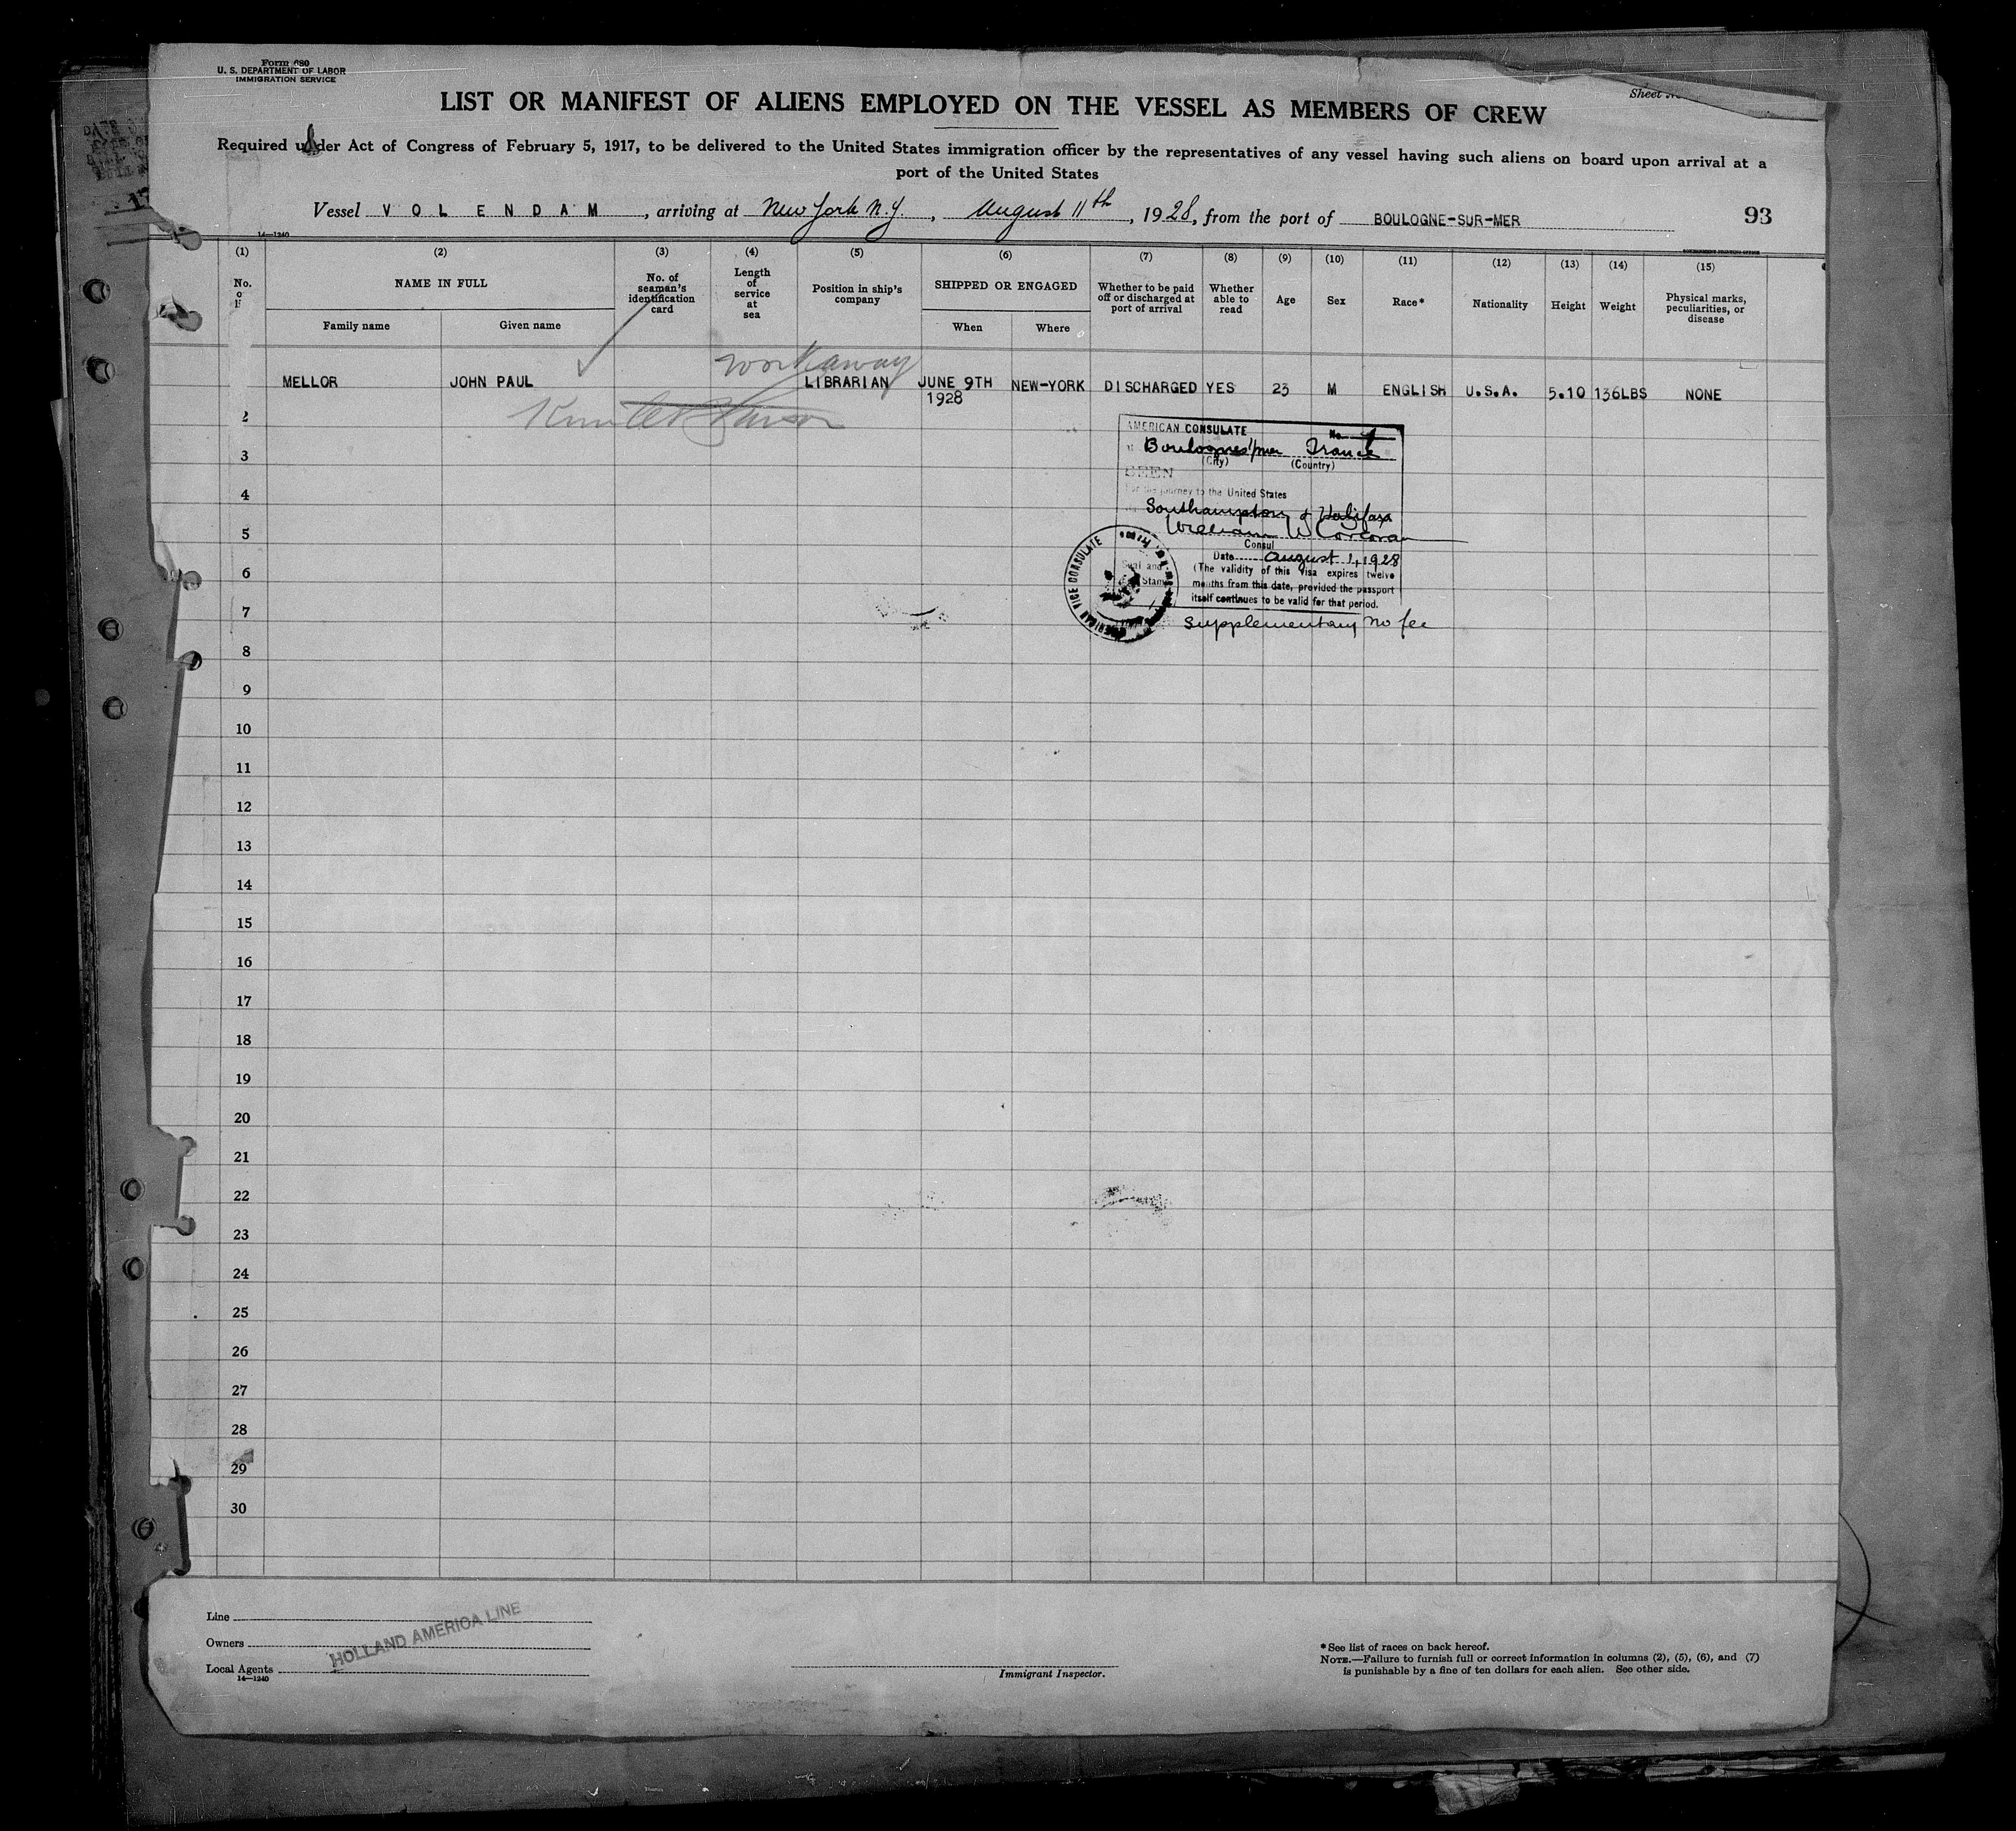 Form 680
U. S. DEPARTMENT OF LABOR
IMMIGRATION SERVICE
Sheet
LIST OR MANIFEST OF ALIENS EMPLOYED ON THE VESSEL AS MEMBERS OF CREW
Required under Act of Congress of February 5, 1917, to be delivered to the United States immigration officer by the representatives of any vessel having such aliens on board upon arrival at a
port of the United States
Vessel VOLENDAM, arriving at New York N.Y., August 11th, 1928, from the port of BOULOGNE-SUR-MER 93
14—1240
(1) (2) (3) (4) (5) (6) (7) (8) (9) (10) (11) (12) (13) (14) (15)
No.
NAME IN FULL
Family name
Given name
No. of seaman's identification card
Length of service at sea
Position in ship's company
SHIPPED OR ENGAGED
When
Where
Whether to be paid off or discharged at port of arrival
Whether able to read
Age
Sex
Race*
Nationality
Height
Weight
Physical marks, peculiarities, or disease
workaway
MELLOR JOHN PAUL LIBRARIAN JUNE 9TH NEW-YORK DISCHARGED YES 23 M ENGLISH U.S.A. 5.10 136LBS NONE
1928
2
3
4
5
6
7
8
9
10
11
12
13
14
15
16
17
18
19
20
21
22
23
24
25
26
27
28
29
30
AMERICAN CONSULATE
No.
Boulogne s/mer France
(City) (Country)
SEEN
For the journey to the United States
Southampton & Halifax
William W Corcoran
Consul
Date August 1, 1928
(The validity of this visa expires twelve
months from this date, provided the passport
itself continues to be valid for that period.
Seal and
Stamp
AMERICAN VICE CONSULATE
supplementary no fee
Line
Owners
Local Agents
14—1240
HOLLAND AMERICA LINE
Immigrant Inspector.
*See list of races on back hereof.
NOTE.—Failure to furnish full or correct information in columns (2), (5), (6), and (7)
is punishable by a fine of ten dollars for each alien. See other side.